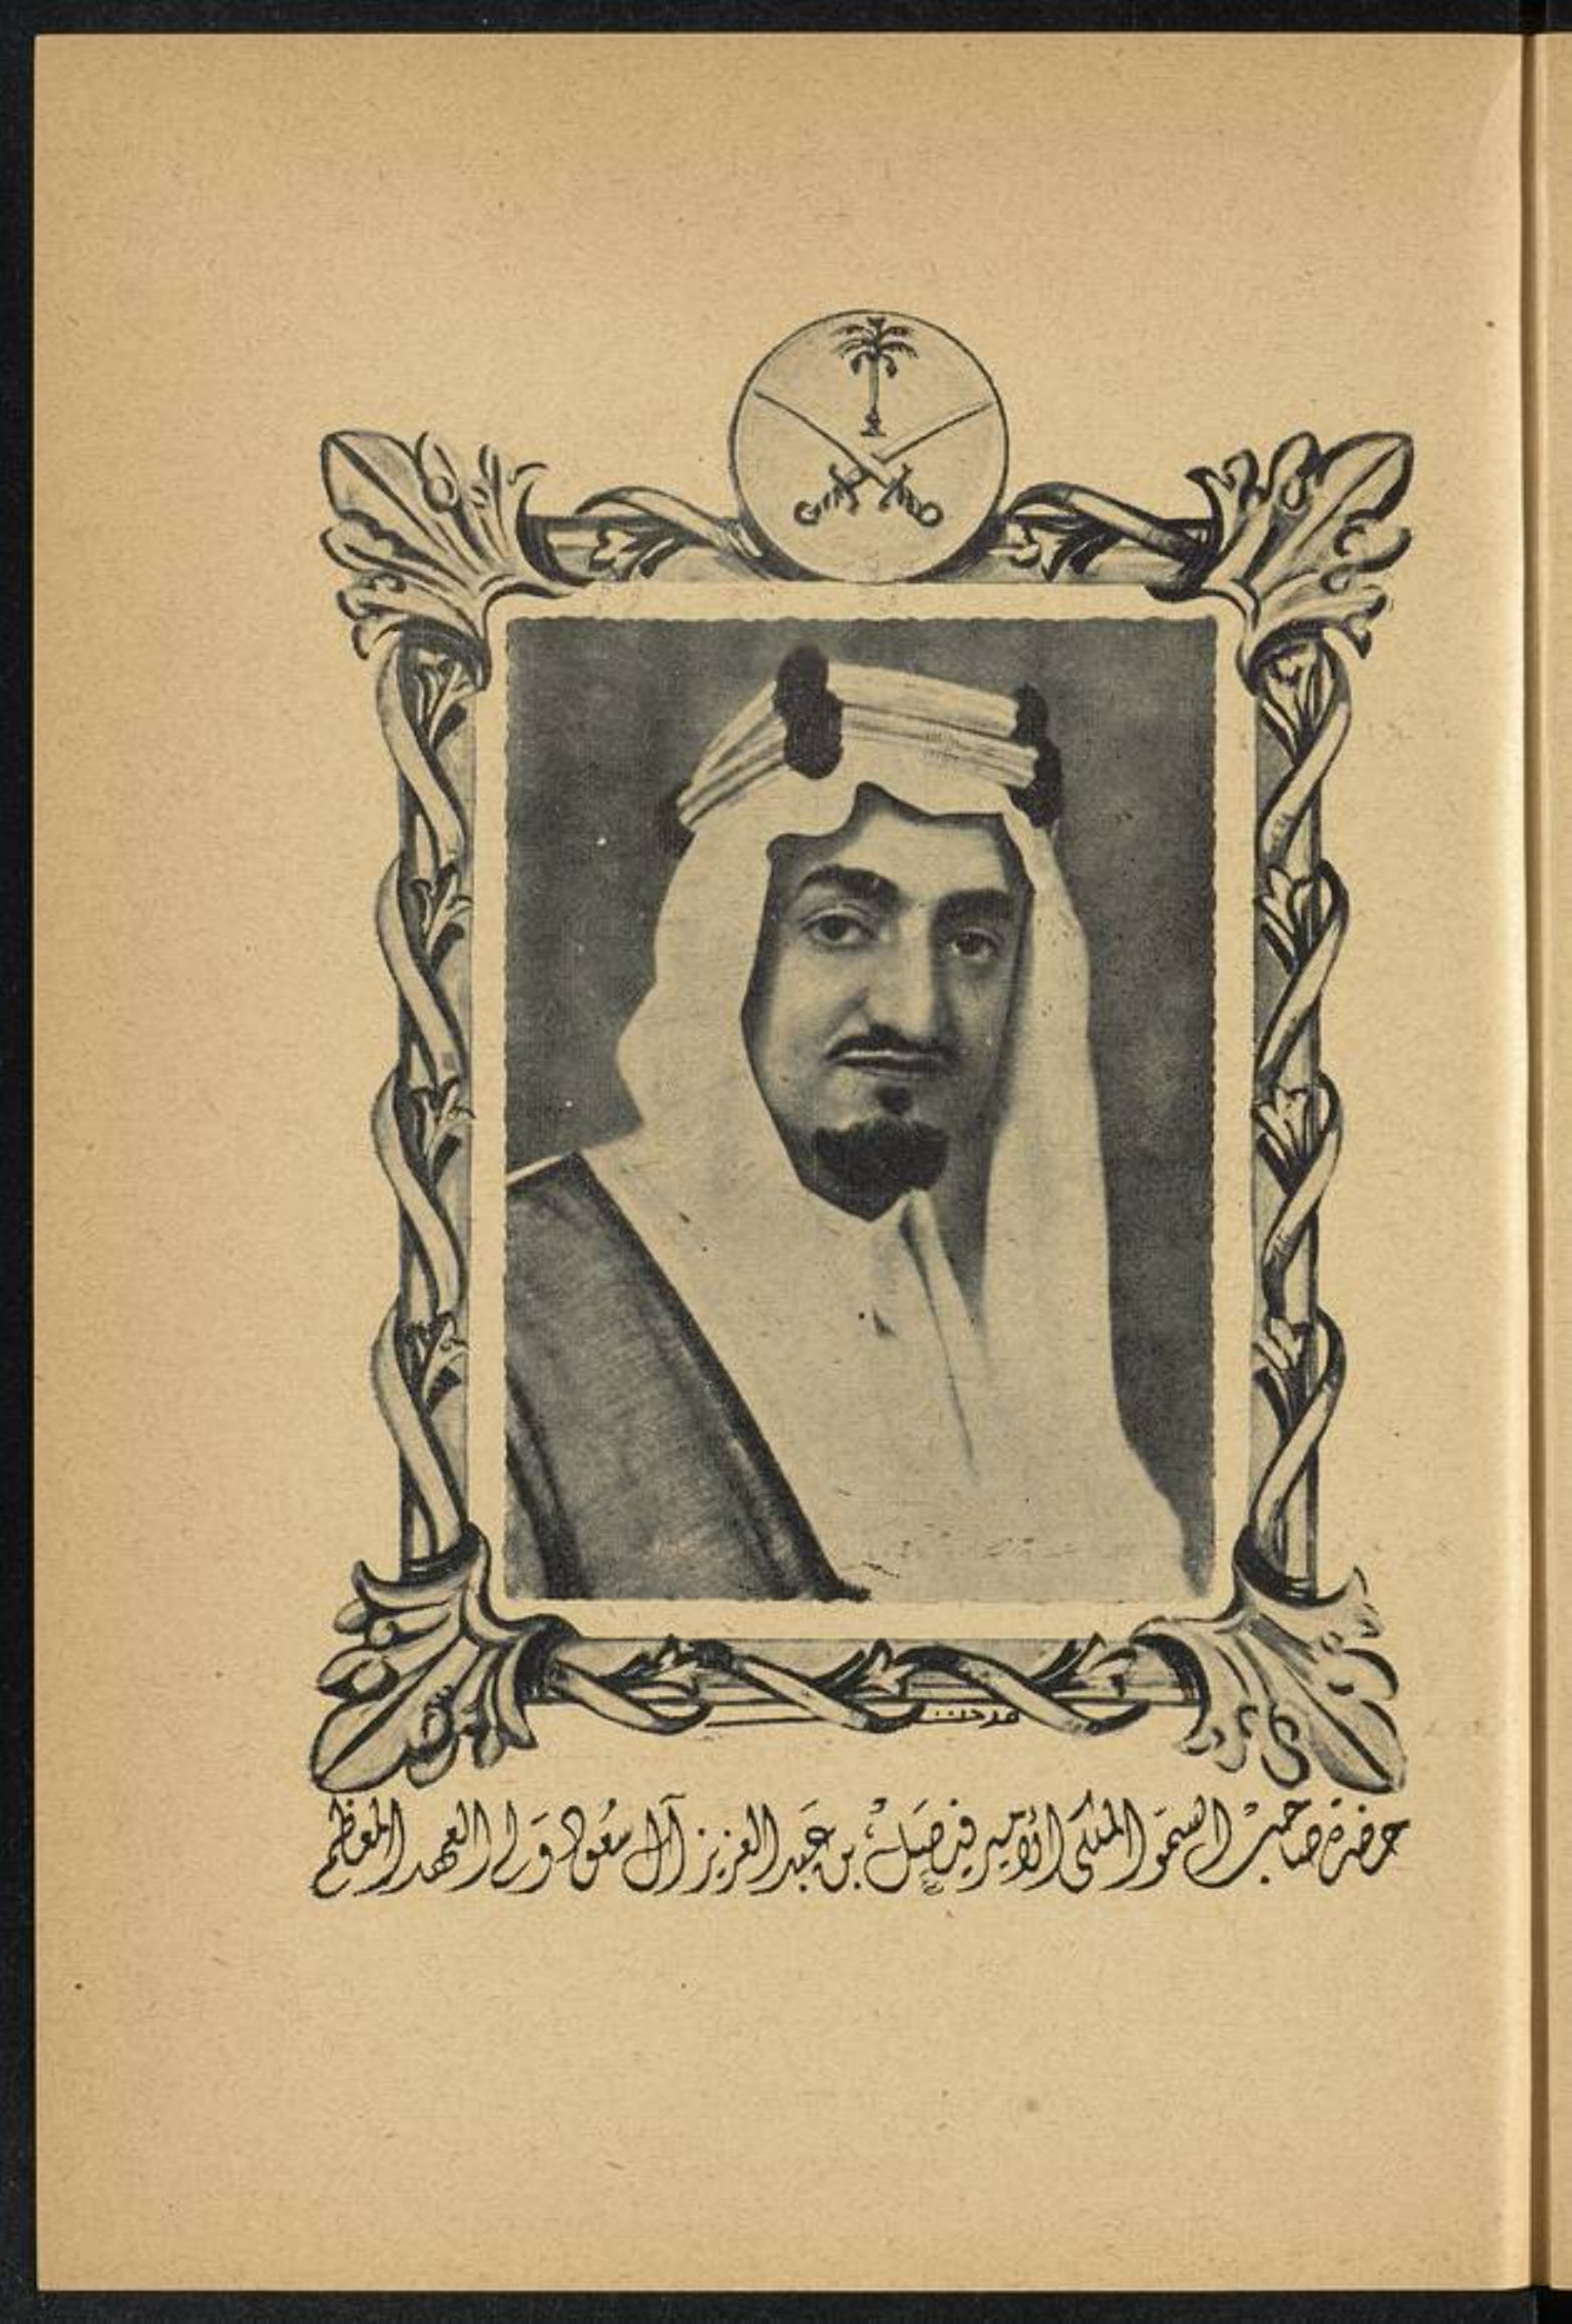 حضرة صاحب السمو الملكى الأمير فيصل بن عبد العزيز آل سعود ولى العهد المعظم